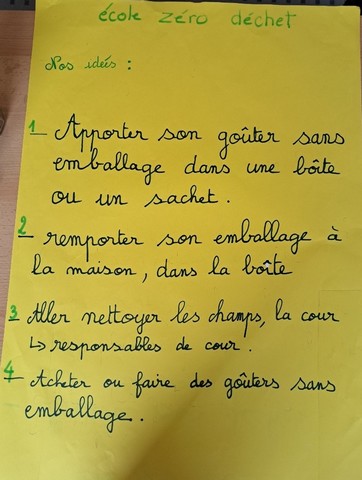 école zéro déchet
Nos idées :
1 Apporter son goûter sans
emballage dans une boîte
ou un sachet.
2 remporter son emballage à
la maison, dans la boîte
3 Aller nettoyer les champs, la cour
↳ responsables de cour.
4 Acheter ou faire des goûters sans
emballage.